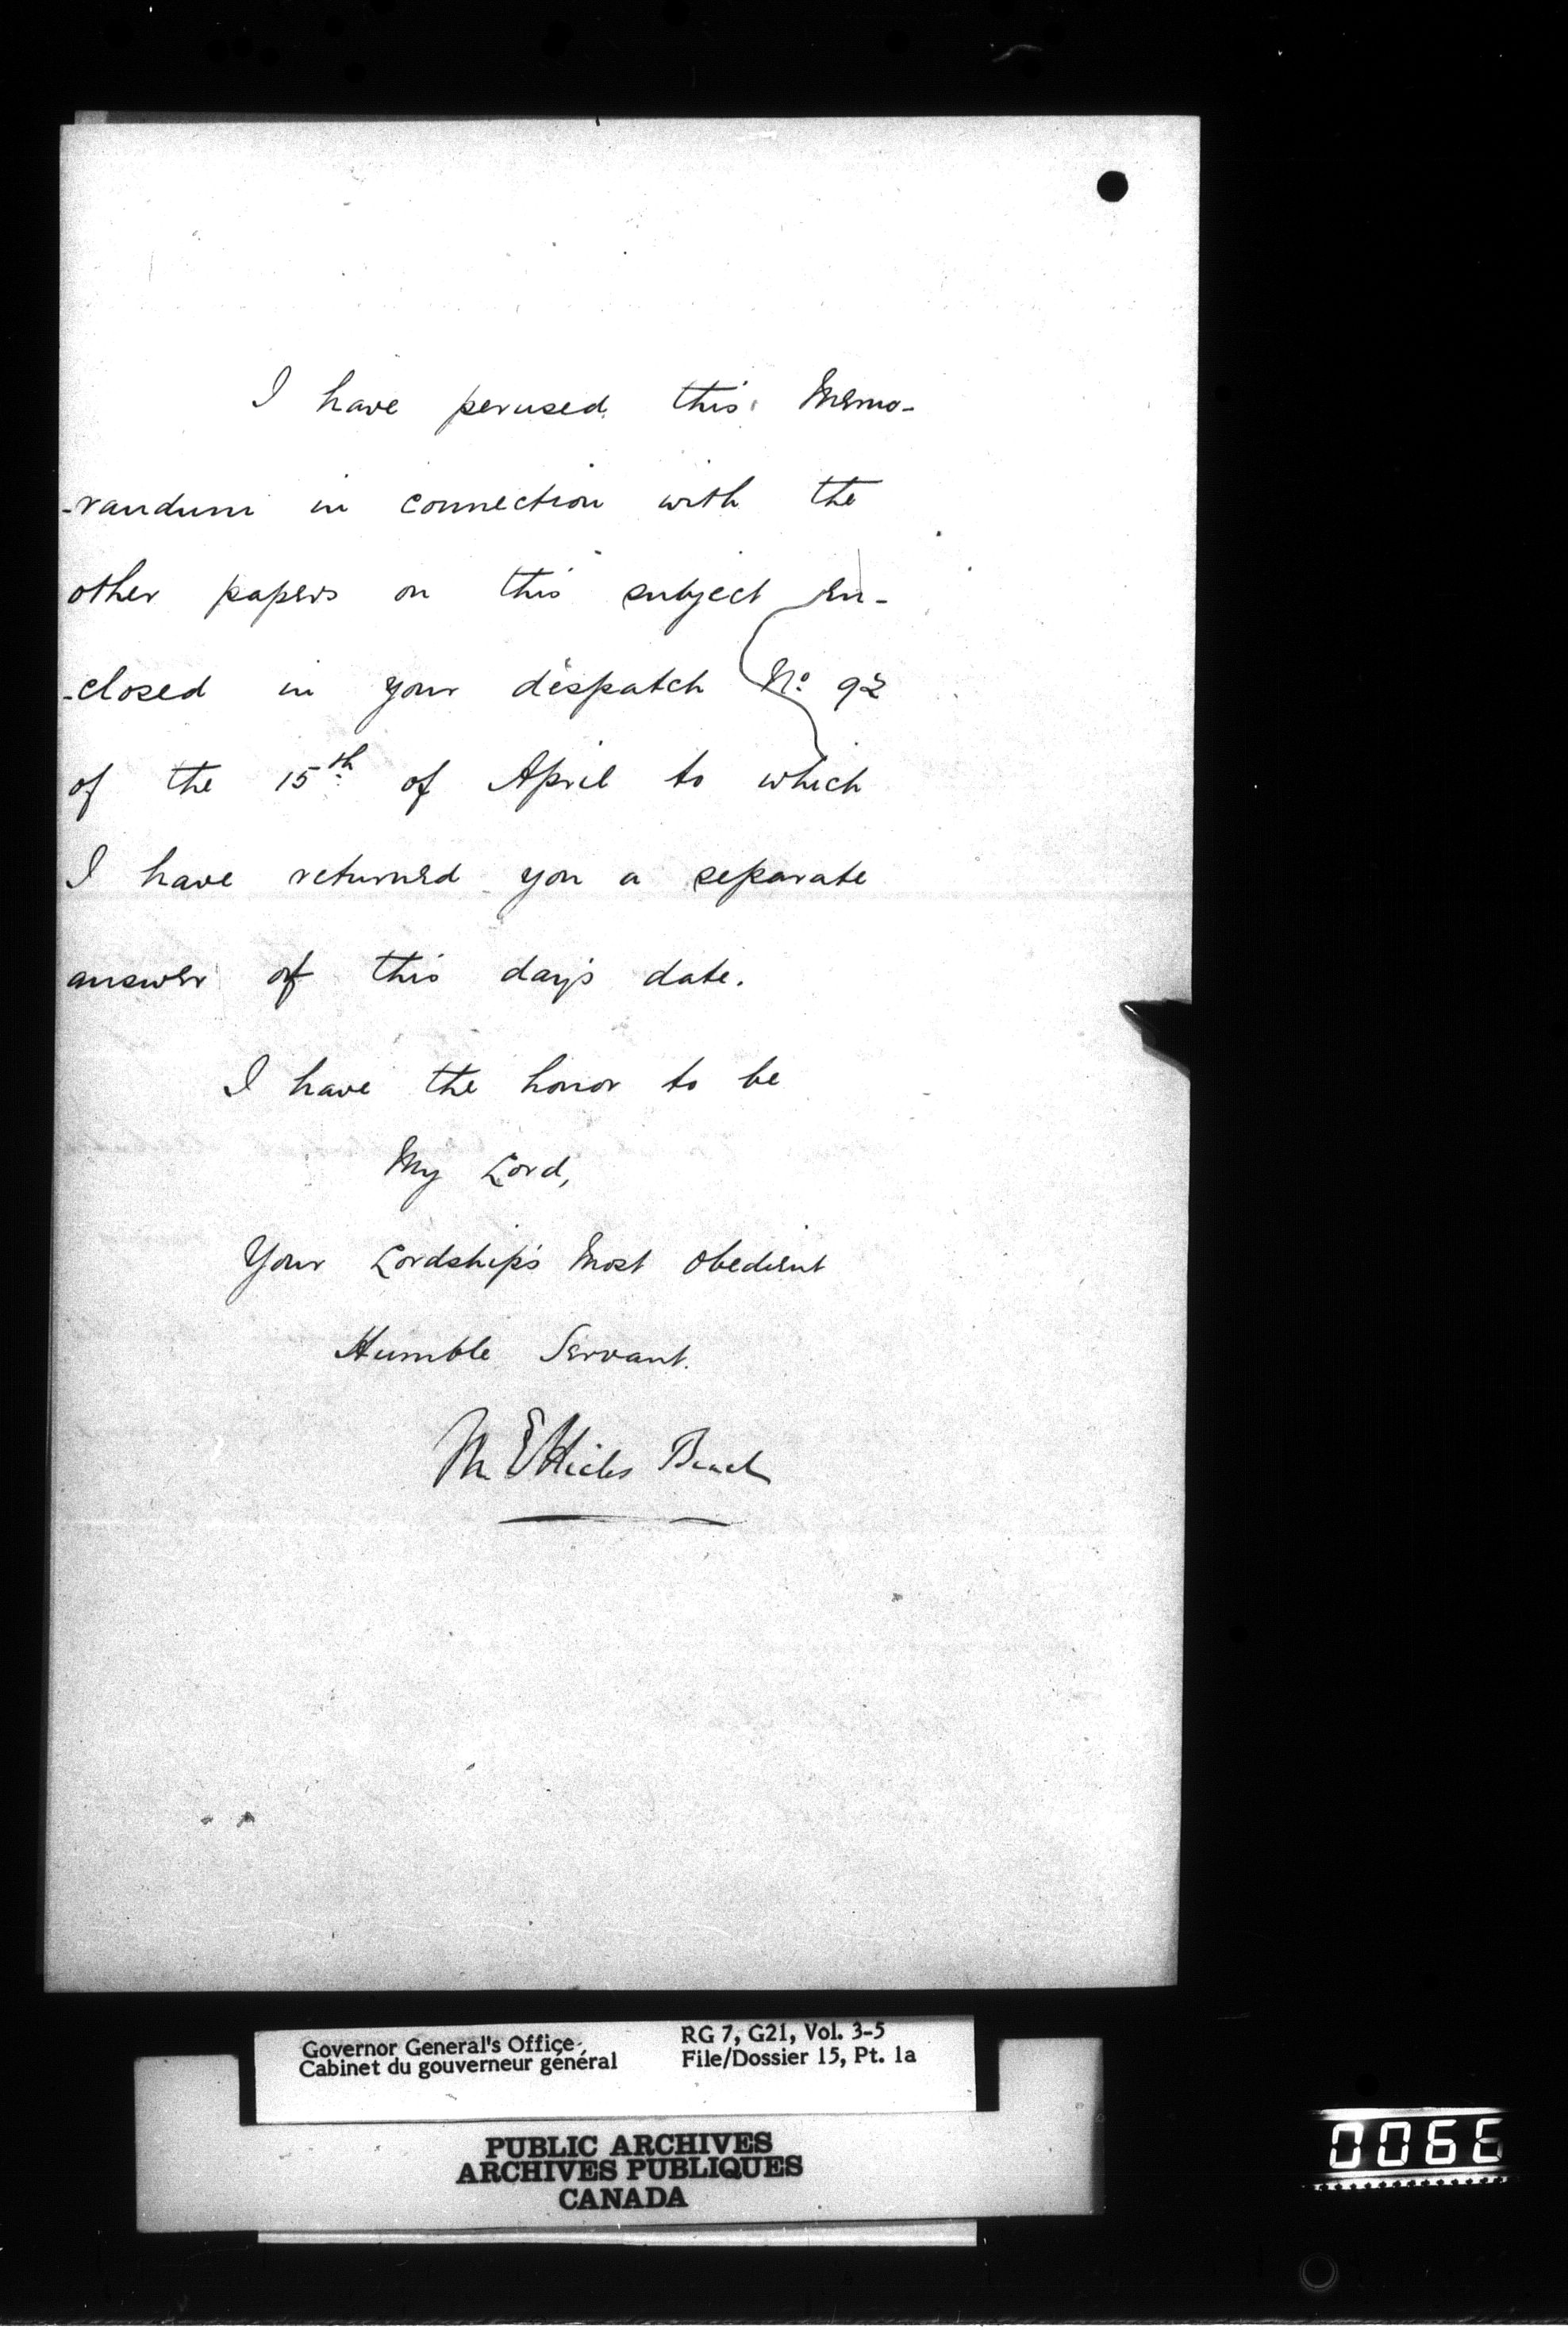 I have perused this Memo-
-randum in connection with the
other papers on this subject en-
-closed in your despatch No 92
of the 15th of April to which
I have returned you a separate
answer of this day's date.
I have the honor to be
My Lord,
Your Lordship's Most Obedient
Humble Servant.
M E Hicks Beach
Governor General's Office
Cabinet du gouverneur général
RG 7, G21, Vol. 3-5
File/Dossier 15, Pt. 1a
PUBLIC ARCHIVES
ARCHIVES PUBLIQUES
CANADA